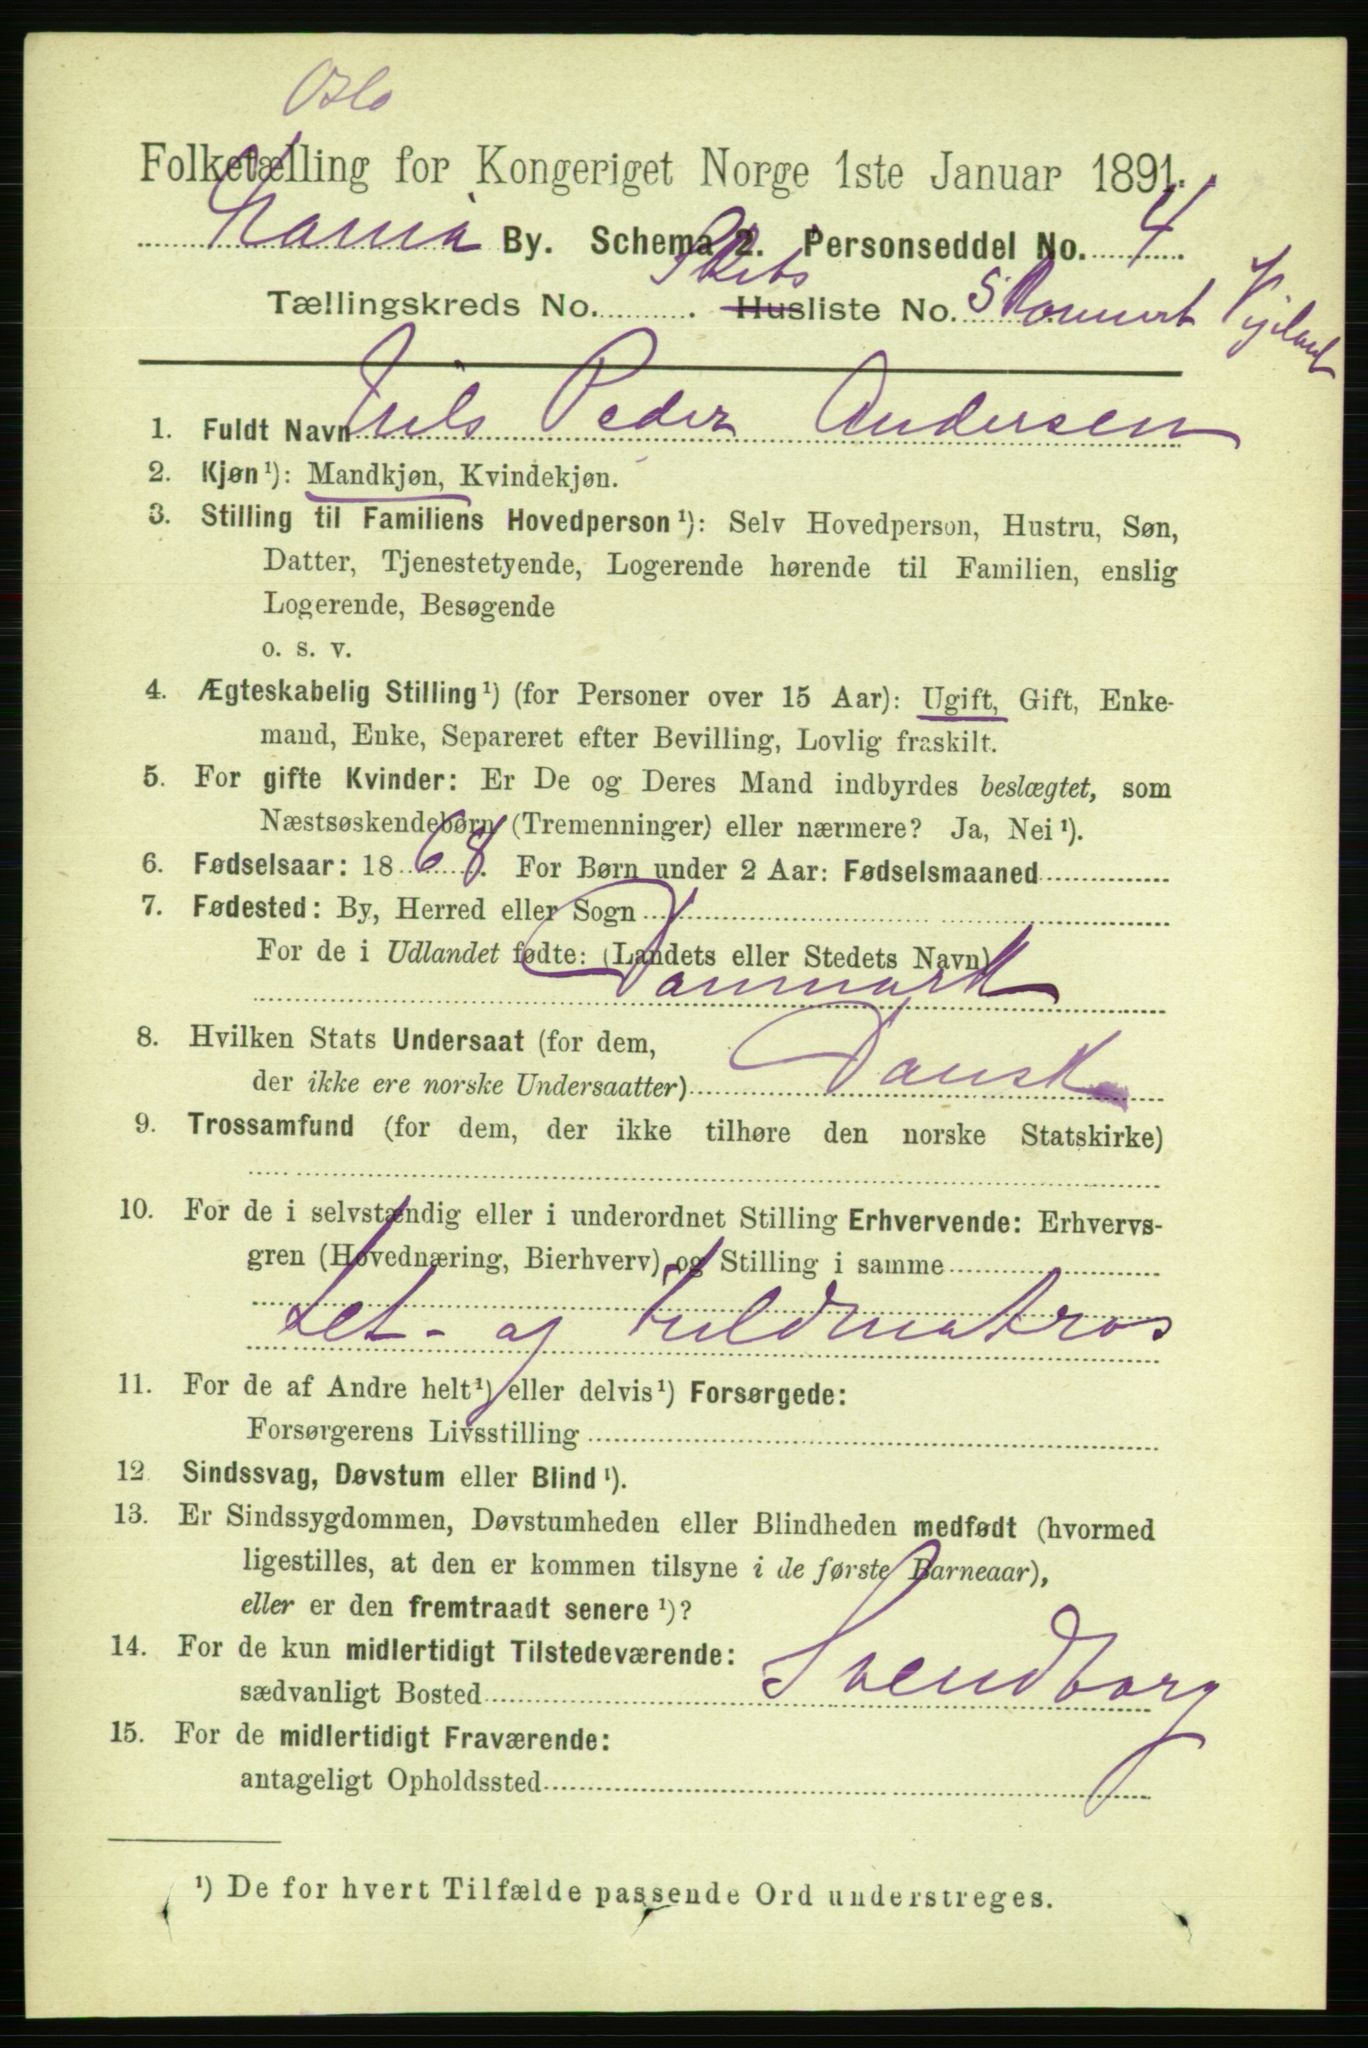 Oslo
Folketælling for Kongeriget Norge 1ste Januar 1891.
By. Schema 2. Personseddel No. 4
Skibs
Tællingskreds No. Husliste No. Skonnert
1. Fuldt Navn Nils Peder Andersen
2. Kjøn ¹): Mandkjøn, Kvindekjøn.
3. Stilling til Familiens Hovedperson ¹): Selv Hovedperson, Hustru, Søn,
Datter, Tjenestetyende, Logerende hørende til Familien, enslig
Logerende, Besøgende
o. s. v.
4. Ægteskabelig Stilling ¹) (for Personer over 15 Aar): Ugift, Gift, Enke-
mand, Enke, Separeret efter Bevilling, Lovlig fraskilt.
5. For gifte Kvinder: Er De og Deres Mand indbyrdes beslægtet, som
Næstsøskendebørn (Tremenninger) eller nærmere? Ja, Nei ¹).
6. Fødselsaar: 1868. For Børn under 2 Aar: Fødselsmaaned
7. Fødested: By, Herred eller Sogn
For de i Udlandet fødte: (Landets eller Stedets Navn)
Danmark
8. Hvilken Stats Undersaat (for dem,
der ikke ere norske Undersaatter) Dansk
9. Trossamfund (for dem, der ikke tilhøre den norske Statskirke)
10. For de i selvstændig eller i underordnet Stilling Erhvervende: Erhvervs-
gren (Hovednæring, Bierhverv) og Stilling i samme
Let- og Fuldmatros
11. For de af Andre helt ¹) eller delvis ¹) Forsørgede:
Forsørgerens Livsstilling
12 Sindssvag, Døvstum eller Blind ¹).
13. Er Sindssygdommen, Døvstumheden eller Blindheden medfødt (hvormed
ligestilles, at den er kommen tilsyne i de første Barneaar),
eller er den fremtraadt senere ¹)?
14. For de kun midlertidigt Tilstedeværende:
sædvanligt Bosted Svendborg
15. For de midlertidigt Fraværende:
antageligt Opholdssted
¹) De for hvert Tilfælde passende Ord understreges.